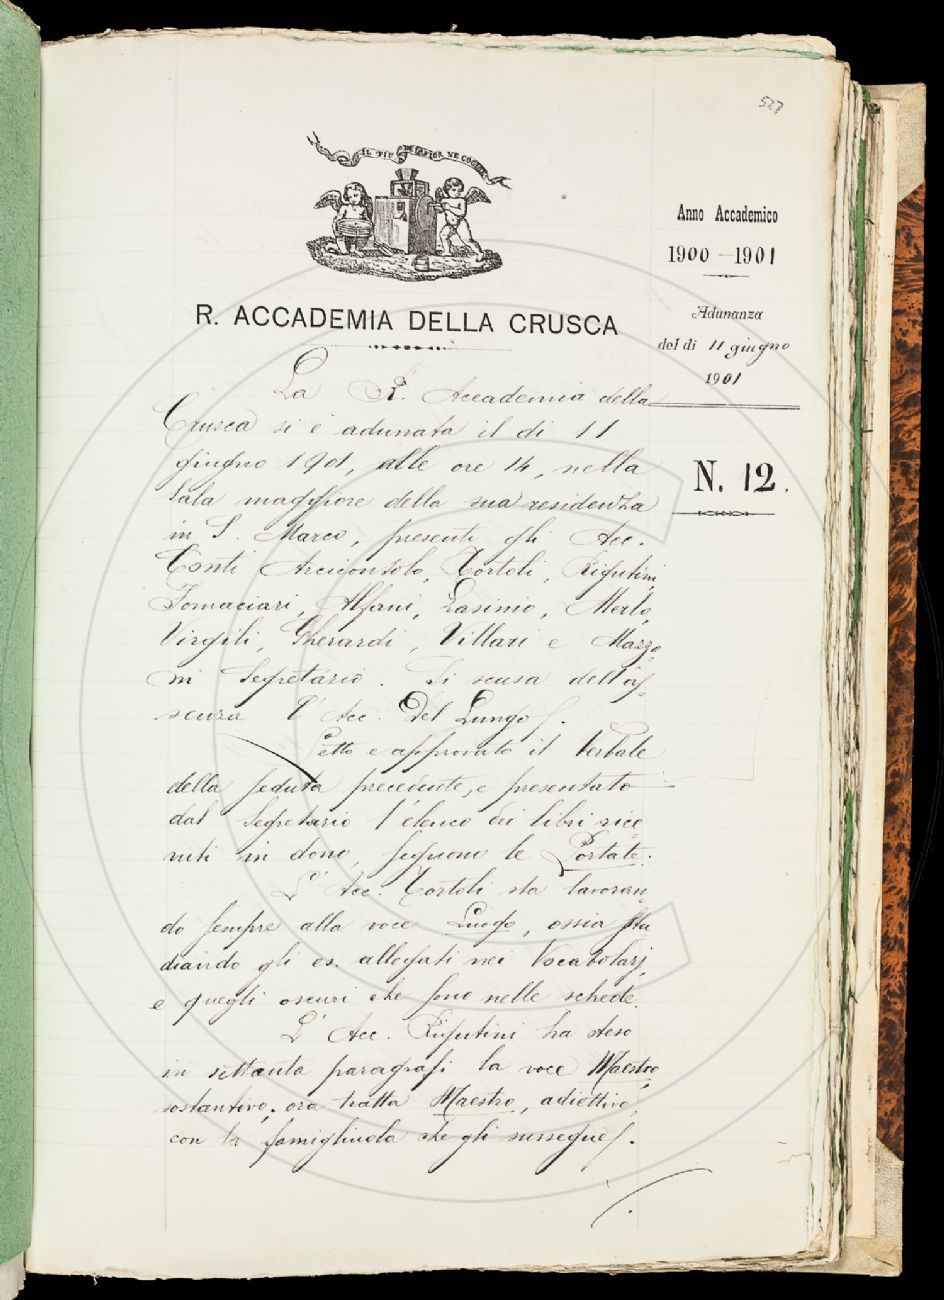 527
IL PIÙ BEL FIOR NE COGLIE
Anno Accademico
1900-1901
Adunanza
del dì 11 giugno
1901
N. 12.
R. ACCADEMIA DELLA CRUSCA
La R. Accademia della
Crusca si è adunata il dì 11
giugno 1901, alle ore 14, nella
sala maggiore della sua residenza
in S. Marco, presenti gli Acc.
Conti Arciconsolo, Tortoli, Rigutini,
Fornaciari, Alfani, Lasinio, Merlo,
Virgili, Gherardi, Villari e Mazzo-
ni Segretario. Si scusa dell'as-
senza l'Acc. Del Lungo.
Letto e approvato il verbale
della seduta precedente, e presentato
dal Segretario l'elenco dei libri rice-
vuti in dono, seguono le Portate.
L'Acc. Tortoli sta lavoran-
do sempre alla voce Luogo, ossia stu
diando gli es. allegati nei Vocabolarj,
e quegli oscuri che sono nelle schede.
L'Acc. Rigutini ha steso
in settanta paragrafi la voce Maestro,
sostantivo; ora tratta Maestro, adiettivo,
con la famigliuola che gli sussegue.